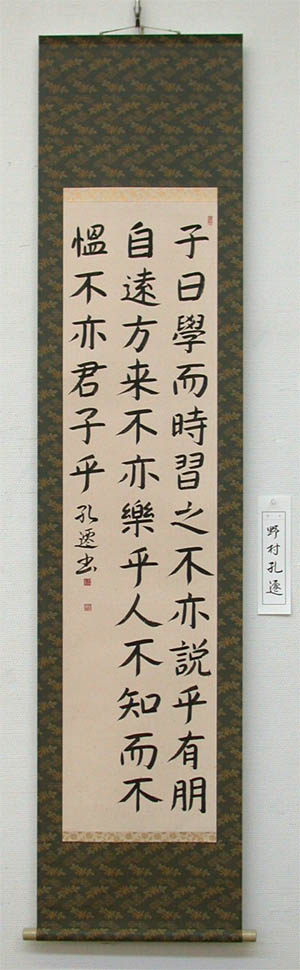 子曰學而時習之不亦説乎有朋
自遠方来不亦樂乎人不知而不
慍不亦君子乎 孔書
野村孔